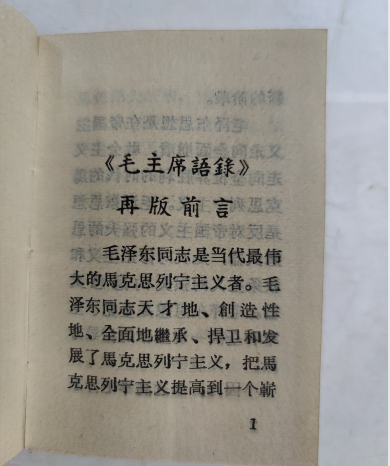 《毛主席語錄》
再版前言
毛泽东同志是当代最伟
大的馬克思列宁主义者。毛
泽东同志天才地、創造性
地、全面地継承、捍卫和发
展了馬克思列宁主义，把馬
克思列宁主义提高到一个嶄
1